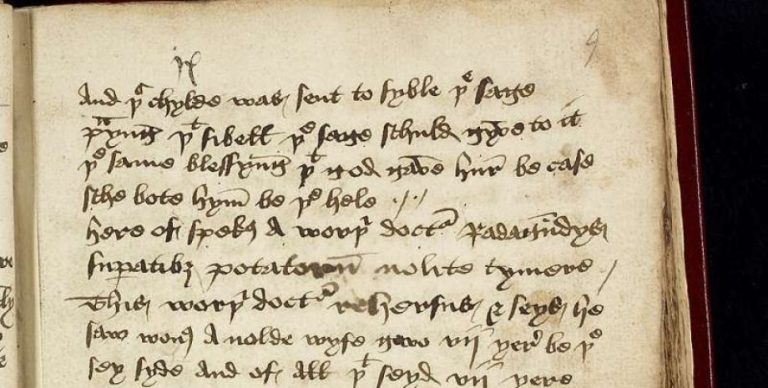 9
And þᵉ chylde was sent to syble þᵉ sage
pᵃyng þᵗ sibell þᵉ sage schuld gyve to it
þᵉ same blessyng þᵗ god gave hur be case
sche bote hym be þᵉ hele
here of spekꝭ A worþi doctʳ Radagūdys
supatibꝫ potatorum nolite tymere
This worþi doctʳ rehersus & seys he
saw wonꝭ A nolde wyfe vii yer be þᵉ
sey syde And of All þᵗ seyd vii yere